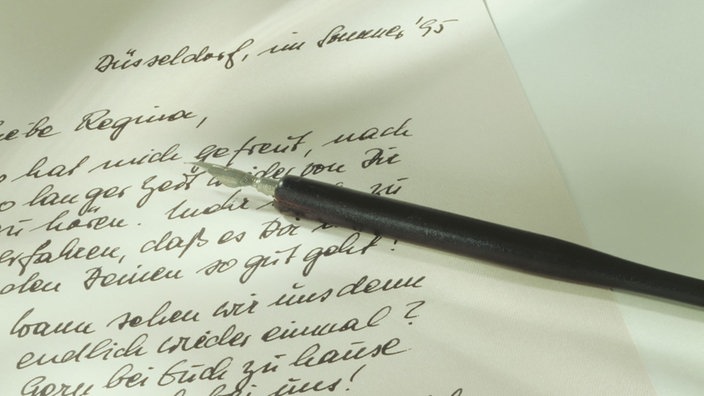 Düsseldorf, im Sommer '95
liebe Regina,
hat mich gefreut, nach
so langer Zeit wieder von Dir
zu hören. Mehr zu
erfahren, daß es Dir
den Deinen so gut geht!
Wann sehen wir uns denn
endlich wieder einmal?
Gern bei Euch zu hause
bei uns!